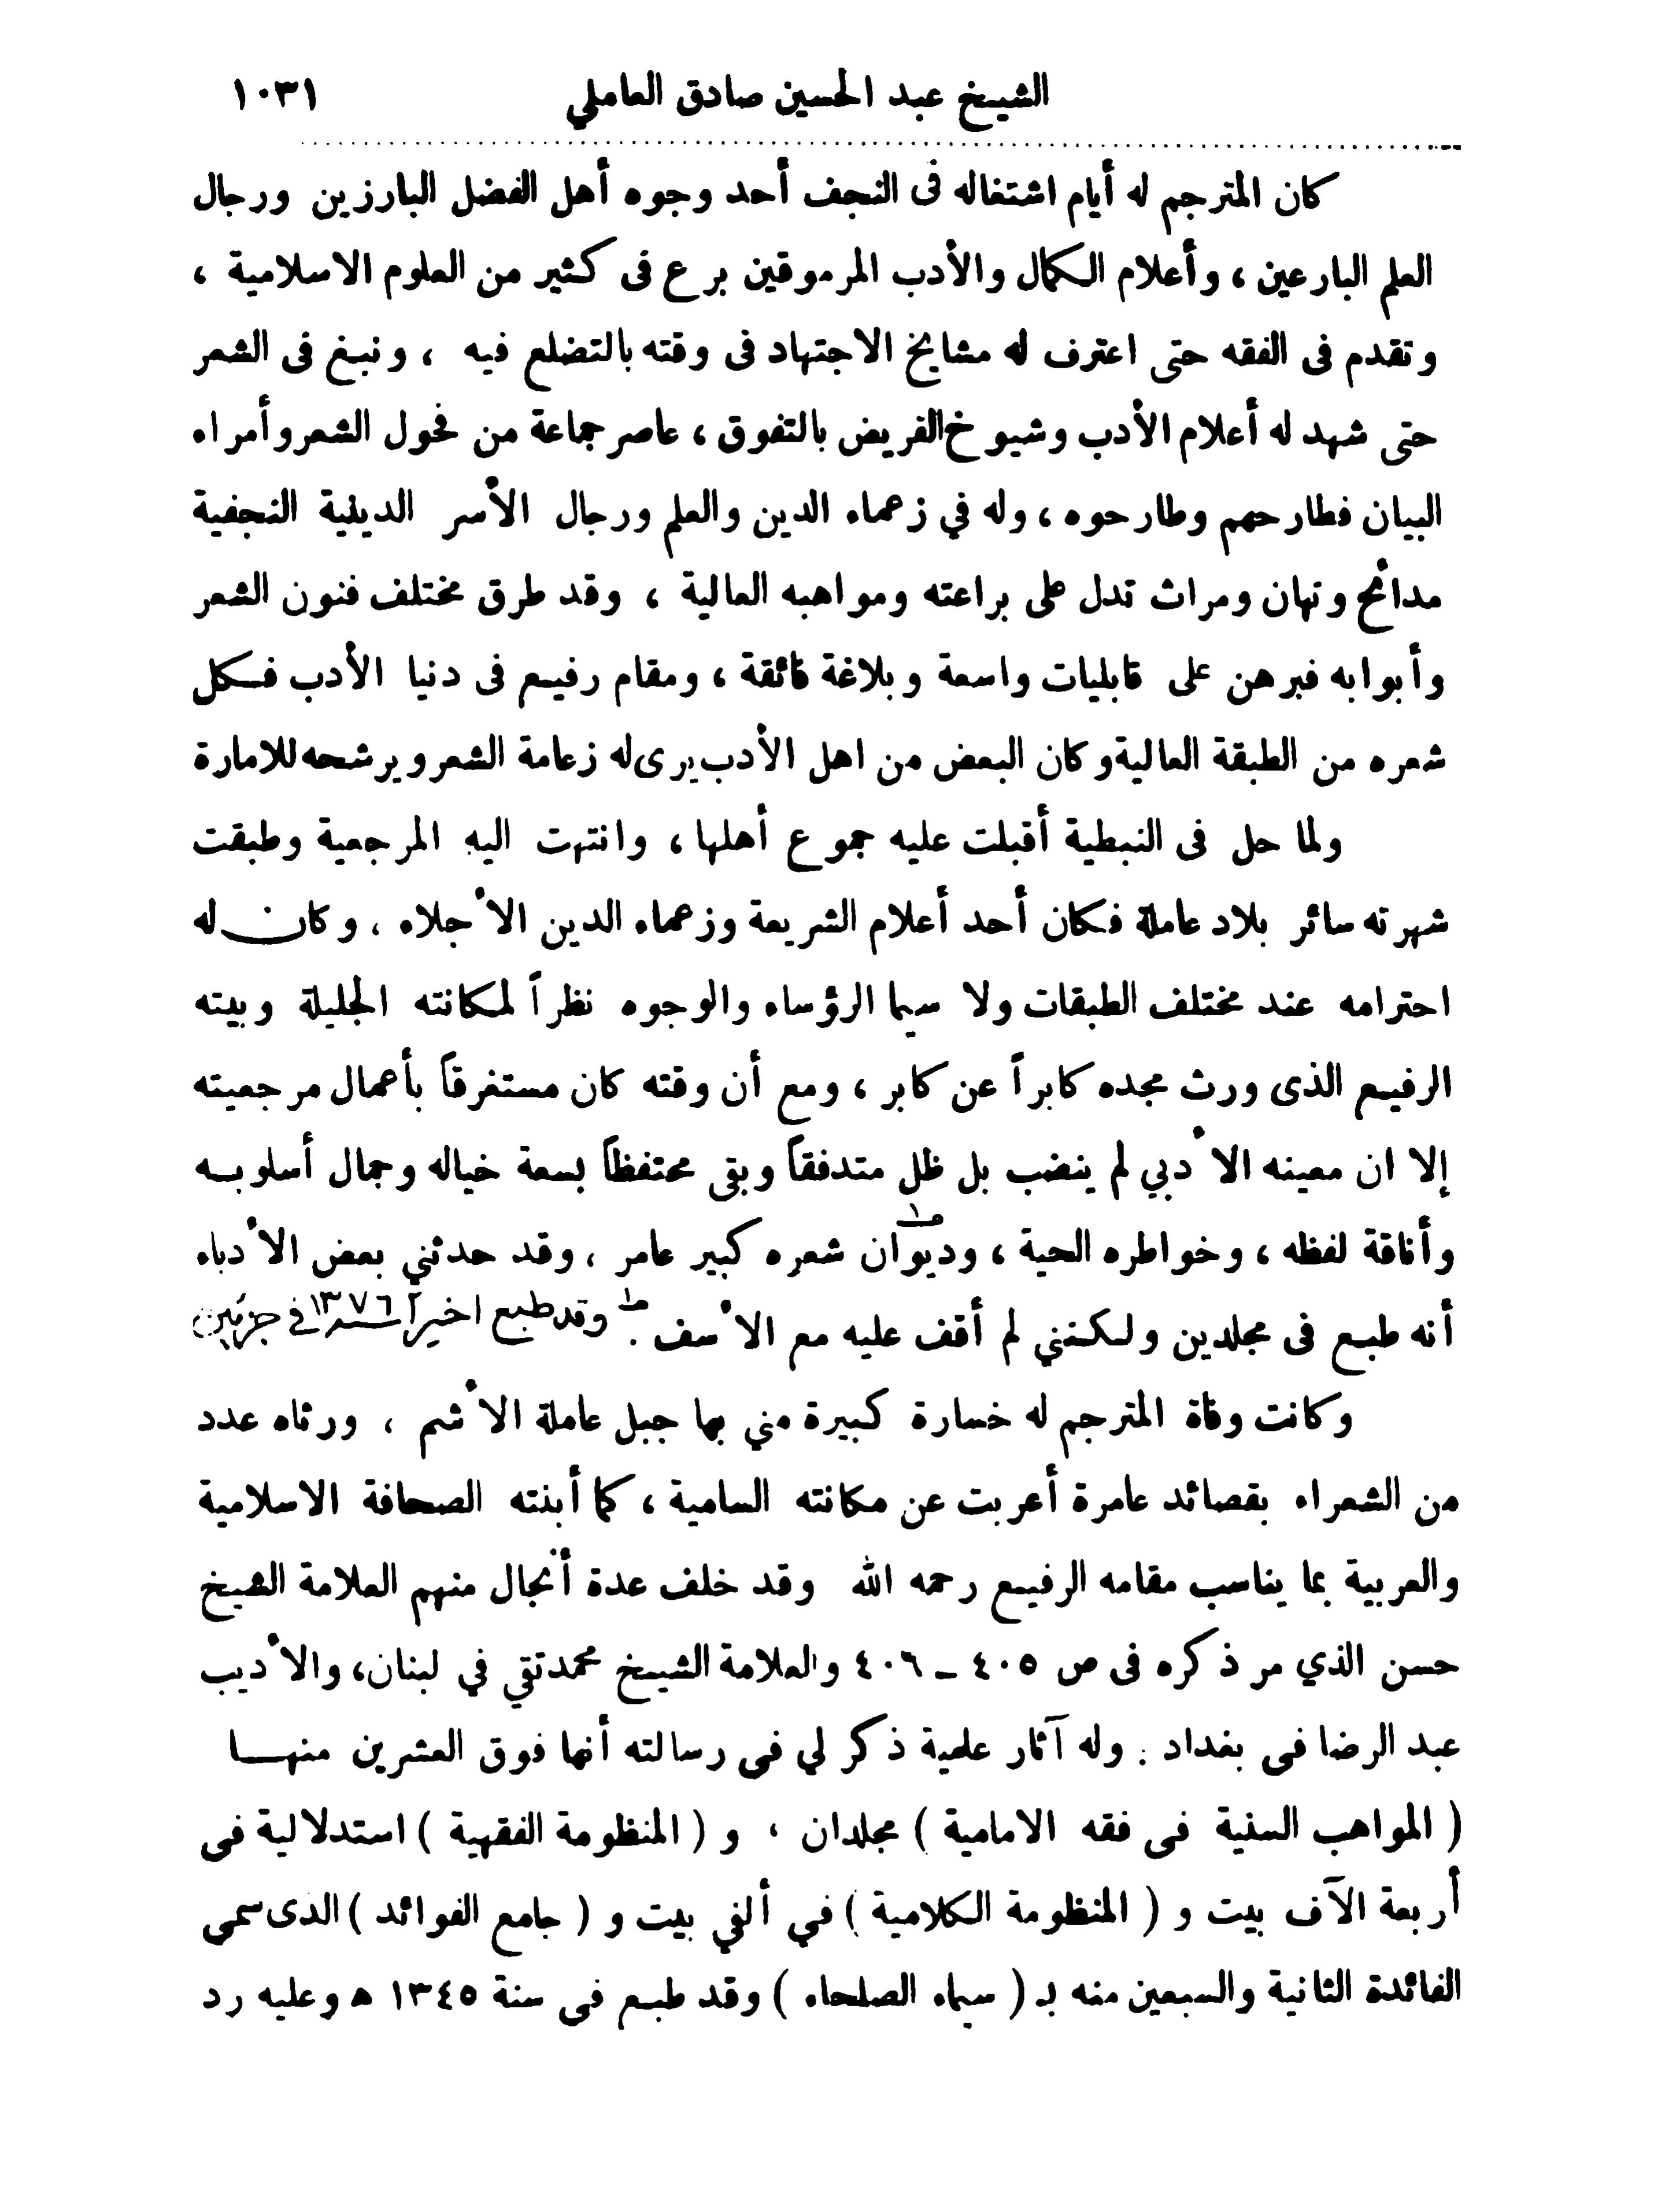 الشيخ عبد الحسين صادق العاملي ١٠٣١
كان المترجم له أيام اشتغاله فى النجف أحد وجوه أهل الفضل البارزين ورجال
العلم البارعين ، وأعلام الكمال والأدب المرموقين برع فى كثير من العلوم الاسلامية ،
وتقدم فى الفقه حتى اعترف له مشايخ الاجتهاد فى وقته بالتضلع فيه ، ونبغ فى الشعر
حتى شهد له أعلام الأدب وشيوخ القريض بالتفوق ، عاصر جماعة من فحول الشعر وأمراء
البيان فطارحهم وطارحوه ، وله في زعماء الدين والعلم ورجال الأسر الدينية النجفية
مدائح وتهان ومراث تدل على براعته ومواهبه العالية ، وقد طرق مختلف فنون الشعر
وأبوابه فبرهن على قابليات واسعة وبلاغة فائقة ، ومقام رفيع فى دنيا الأدب فكل
شعره من الطبقة العالية وكان البعض من اهل الأدب يرى له زعامة الشعر ويرشحه للامارة
ولما حل فى النبطية أقبلت عليه جموع أهلها ، وانتهت اليه المرجعية وطبقت
شهرته سائر بلاد عاملة فكان أحد أعلام الشريعة وزعماء الدين الأجلاء ، وكان له
احترامه عند مختلف الطبقات ولا سيما الرؤساء والوجوه نظراً لمكانته الجليلة وبيته
الرفيع الذى ورث مجده كابراً عن كابر ، ومع أن وقته كان مستغرقاً بأعمال مرجعيته
إلا ان معينه الأدبي لم ينضب بل ظل متدفقاً وبقى محتفظاً بسعة خياله وجمال أسلوبه
وأناقة لفظه ، وخواطره الحية ، وديوان شعره كبير عامر ، وقد حدثني بعض الأدباء
أنه طبع فى مجلدين ولكنني لم أقف عليه مع الأسف . وقد طبع اخيراً سنة ١٣٧٦ في جزئين
وكانت وفاة المترجم له خسارة كبيرة مني بها جبل عاملة الأشم ، ورثاه عدد
من الشعراء بقصائد عامرة أعربت عن مكانته السامية ، كما أبنته الصحافة الاسلامية
والعربية بما يناسب مقامه الرفيع رحمه الله وقد خلف عدة أنجال منهم العلامة الشيخ
حسن الذي مر ذكره فى ص ٤٠٥ ـ ٤٠٦ والعلامة الشيخ محمد تقي في لبنان، والأديب
عبد الرضا فى بغداد . وله آثار علمية ذكر لي فى رسالته أنها فوق العشرين منها
( المواهب السنية فى فقه الامامية ) مجلدان ، و ( المنظومة الفقهية ) استدلالية فى
أربعة الآف بيت و ( المنظومة الكلامية ) في ألفي بيت و ( جامع الفوائد ) الذى سمى
الفائدة الثانية والسبعين منه بـ ( سيماء الصلحاء ) وقد طبع فى سنة ١٣٤٥ ه وعليه رد